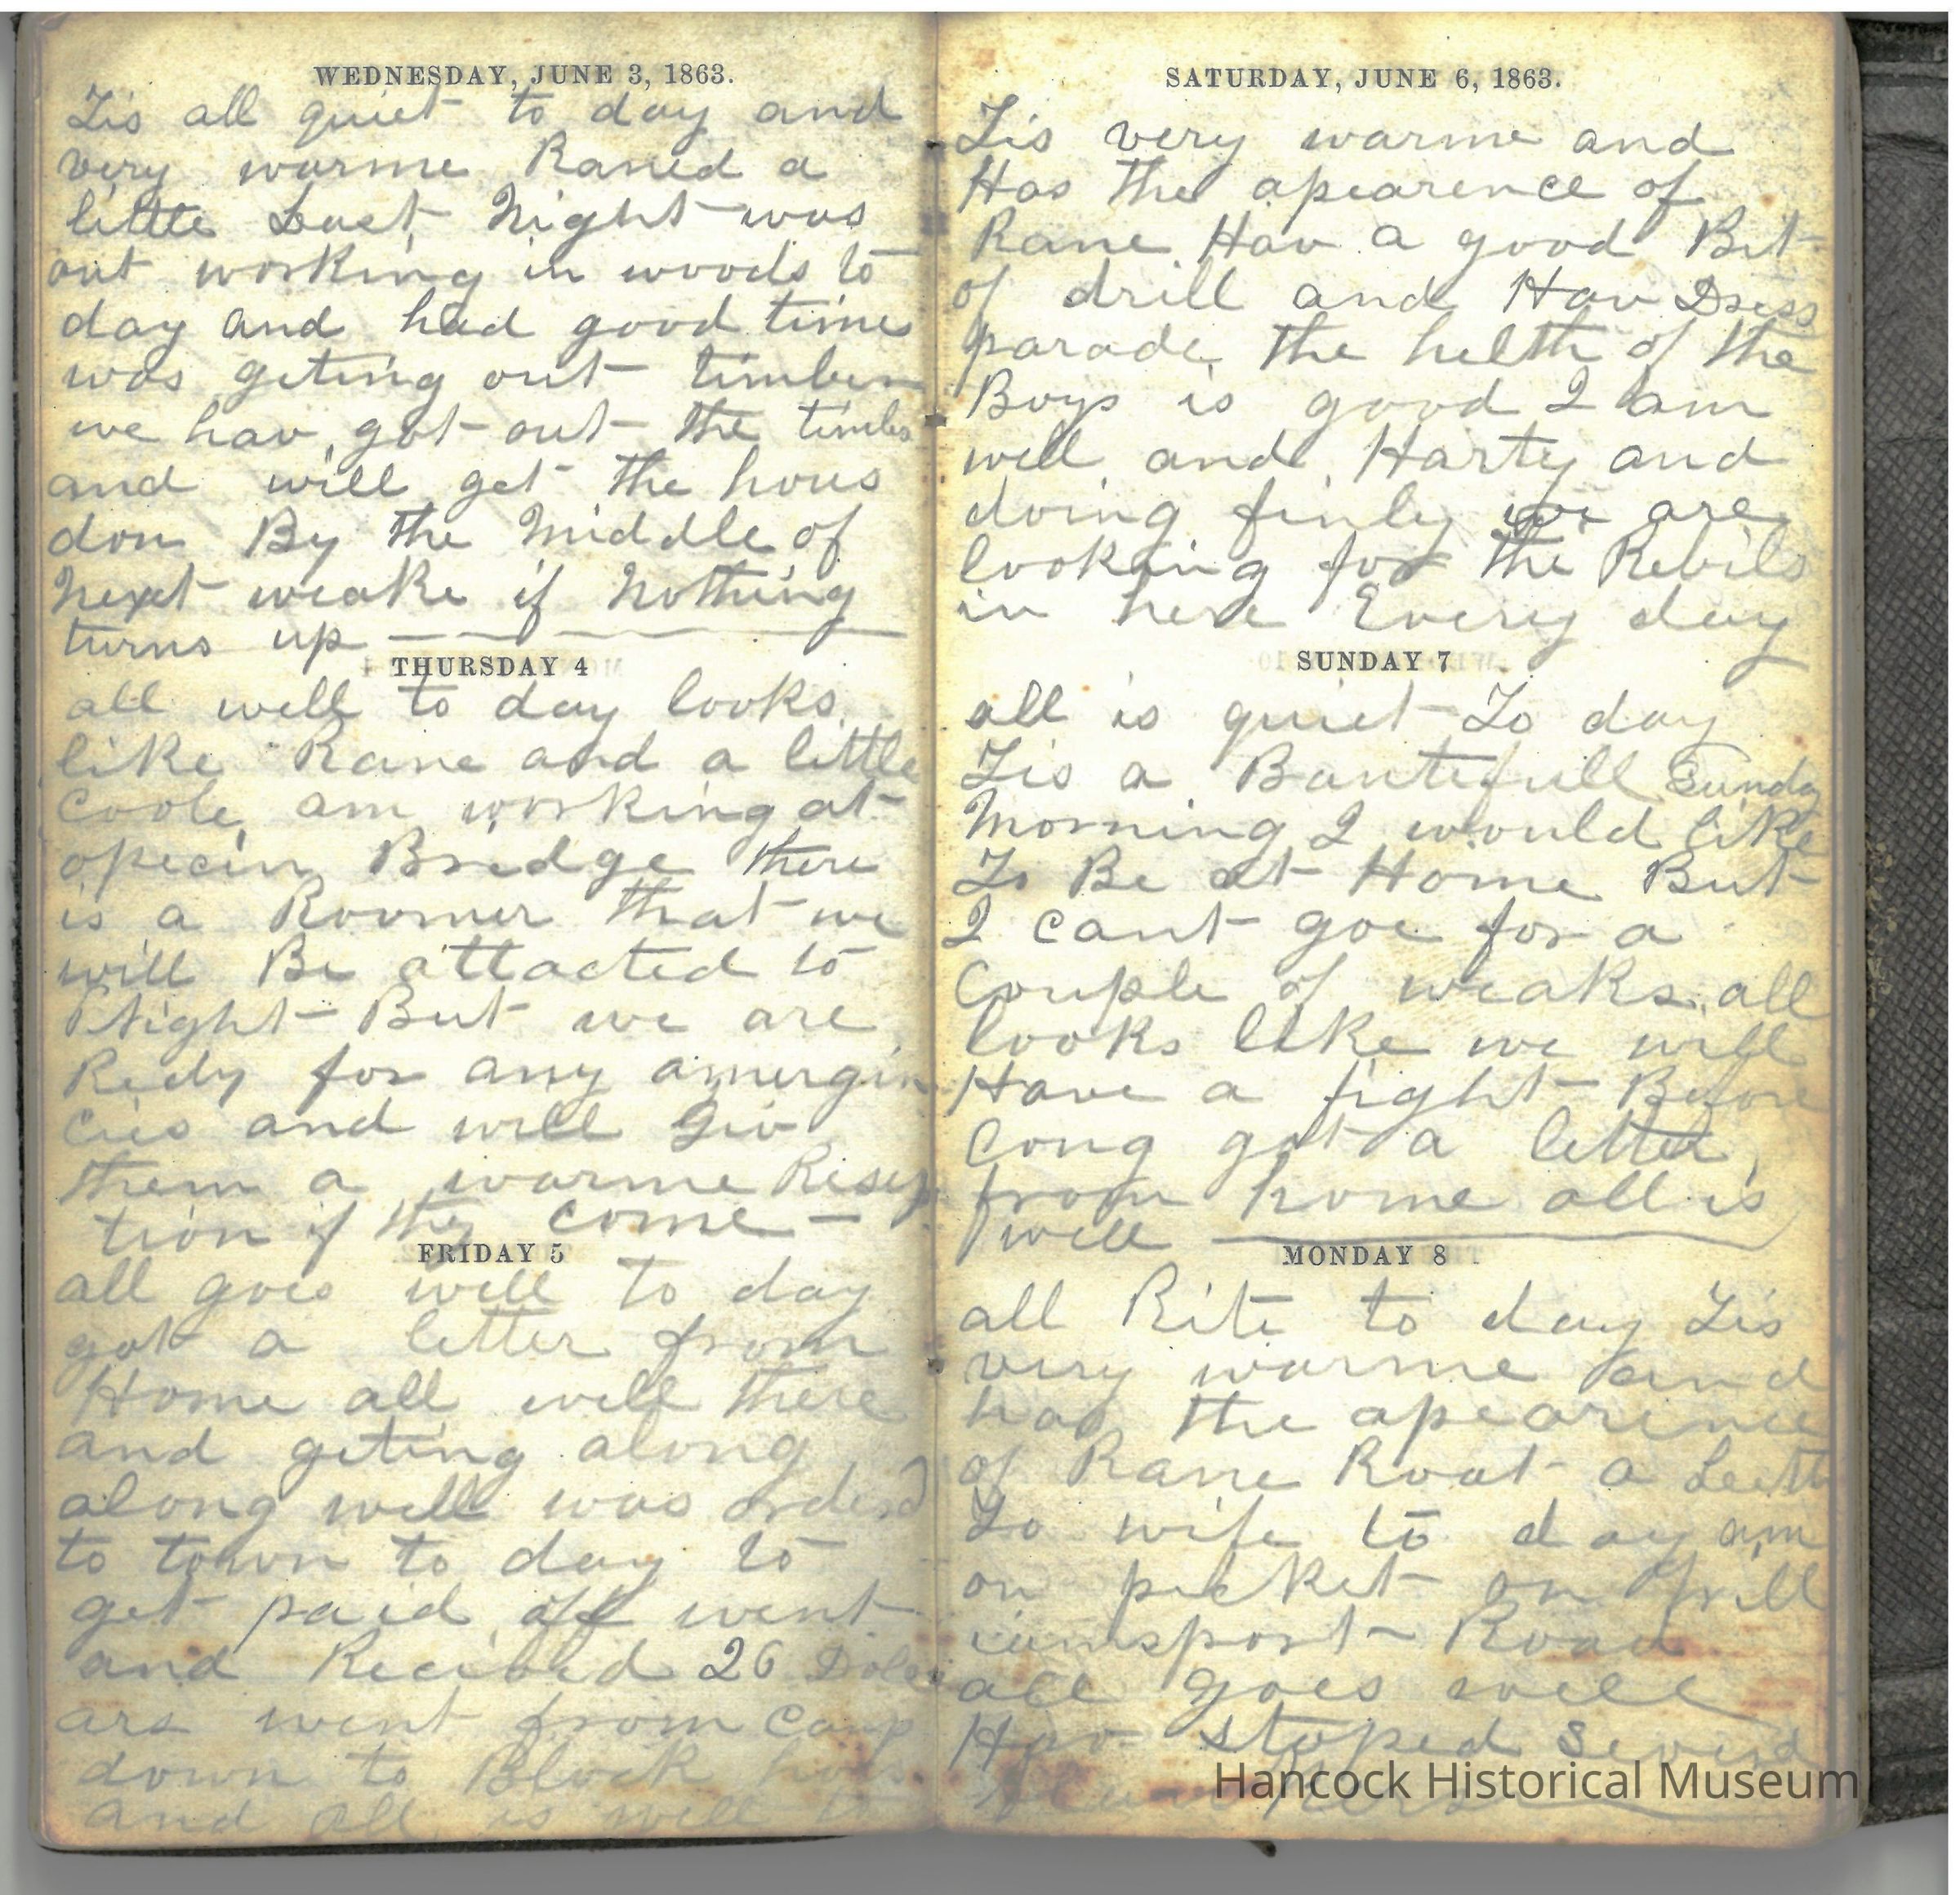 WEDNESDAY, JUNE 3, 1863.
Tis all quiet to day and
very warme Raned a
little Last Night was
out working in woods to
day and had good time
was geting out timber
we hav got out the timber
and will get the hous
don By the Middle of
Next weake if Nothing
turns up
THURSDAY 4
all well to day looks
like Rane and a little
Coole am working at
opecin Bridge there
is a Roomer that we
will Be attacted to
Night But we are
Redy for any amergin
cies and will Giv
them a warme Risep
tion if they come
FRIDAY 5
all goes well to day
got a letter from
Home all well there
and geting along
along well was orderd
to town to day to
get paid off went
and Recieved 26 Doll
ars went from Camp
down to Block hous
and all is well to
SATURDAY, JUNE 6, 1863.
Tis very warme and
Has the apearence of
Rane Hav a good Bit
of drill and Hav Dress
parade the helth of the
Boys is good I am
well and Harty and
doing finly we are
looking for the Rebils
in here Every day
SUNDAY 7
all is quiet To day
Tis a Bautifull Sunday
Morning I would like
To Be at Home But
I cant goe for a
Couple of weaks all
looks like we will
Have a fight Before
long got a letter
from home all is
well
MONDAY 8
all Rite to day Tis
very warme and
has the apearince
of Rane Roat a Lett
To wife to day am
on picket on Will
iamsport Road
all goes well
Hav stoped
Hancock Historical Museum